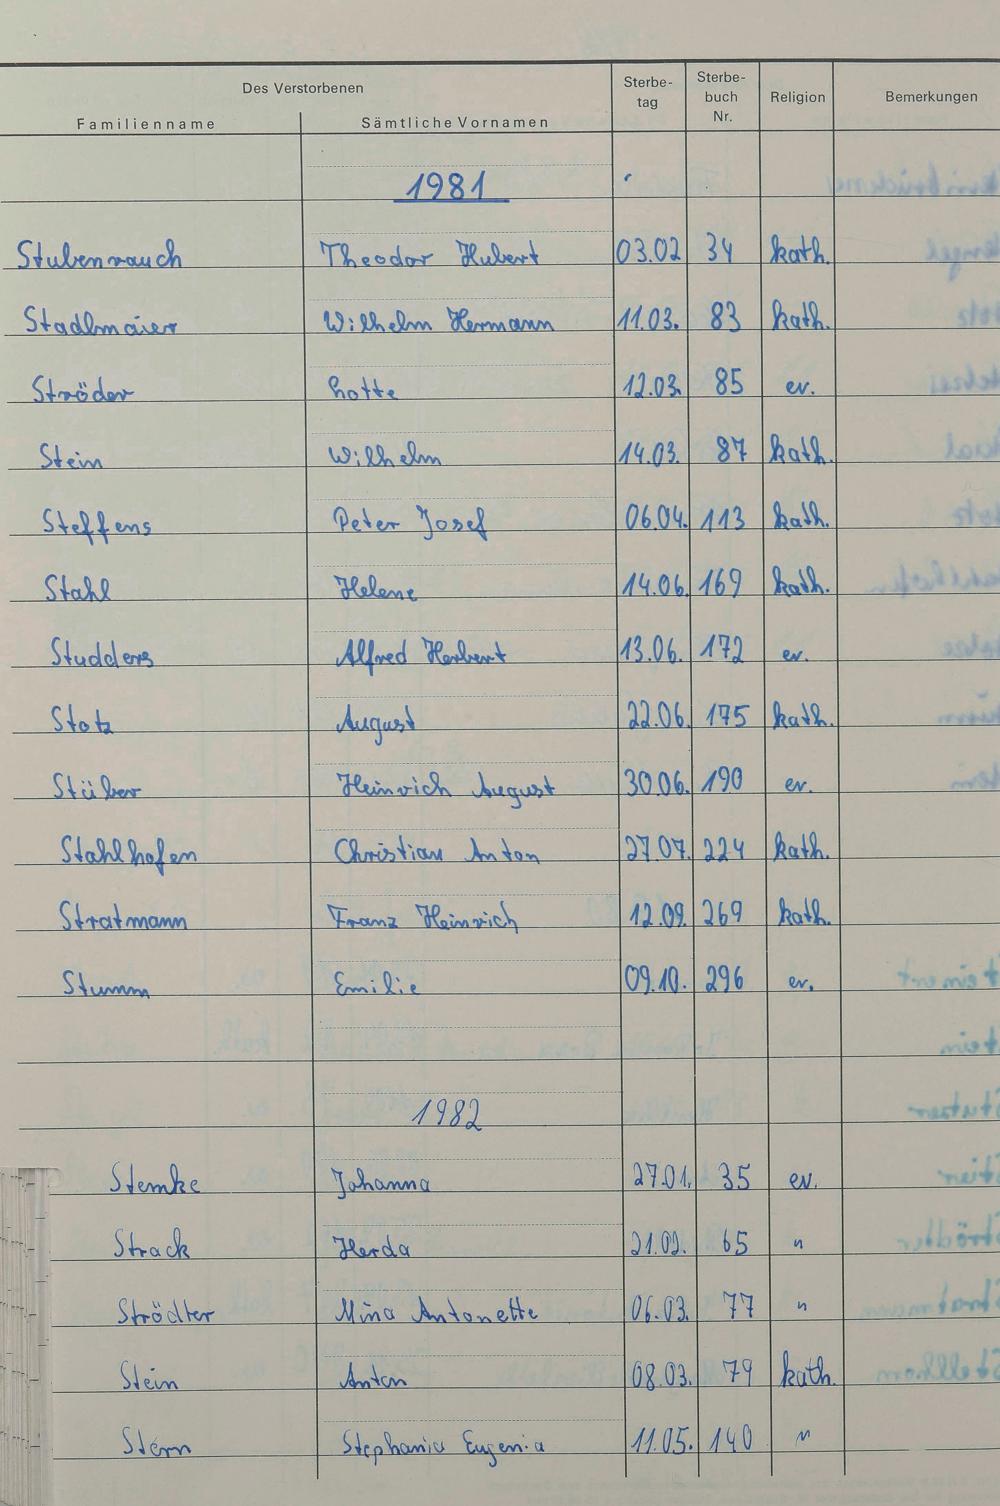 Des Verstorbenen Sterbe- Sterbe-
Familienname Sämtliche Vornamen tag buch Religion Bemerkungen
Nr.
1981
Stubenrauch Theodor Hubert 03.02 34 kath.
Stadlmaier Wilhelm Hermann 11.03. 83 kath.
Ströder Lotte 12.03. 85 ev.
Stein Wilhelm 14.03. 87 kath.
Steffens Peter Josef 06.04. 113 kath.
Stahl Helene 14.06. 169 kath.
Studders Alfred Herbert 13.06. 172 ev.
Stotz August 22.06. 175 kath.
Stüber Heinrich August 30.06. 190 ev.
Stahlhofen Christian Anton 27.07. 224 kath.
Stratmann Franz Heinrich 12.09. 269 kath.
Stumm Emilie 09.10. 296 ev.
1982
Stemke Johanna 27.01. 35 ev.
Strack Herda 21.02. 65 "
Strödter Mina Antonette 06.03. 77 "
Stein Anton 08.03. 79 kath.
Stern Stephania Eugenia 11.05. 140 "